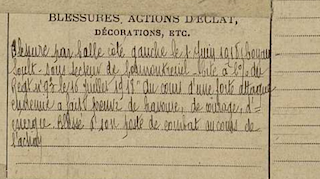 BLESSURES, ACTIONS D'ÉCLAT,
DÉCORATIONS, ETC.
Blessure par balle côté gauche le 1 Juin 1918
sous secteur de Cité n°
Regt n° 93 le 16 Juillet 1918 "au cours d'une forte attaque
ennemie a fait preuve de bravoure, de courage, d'
énergie. Blessé à son poste de combat au cours de
l'action